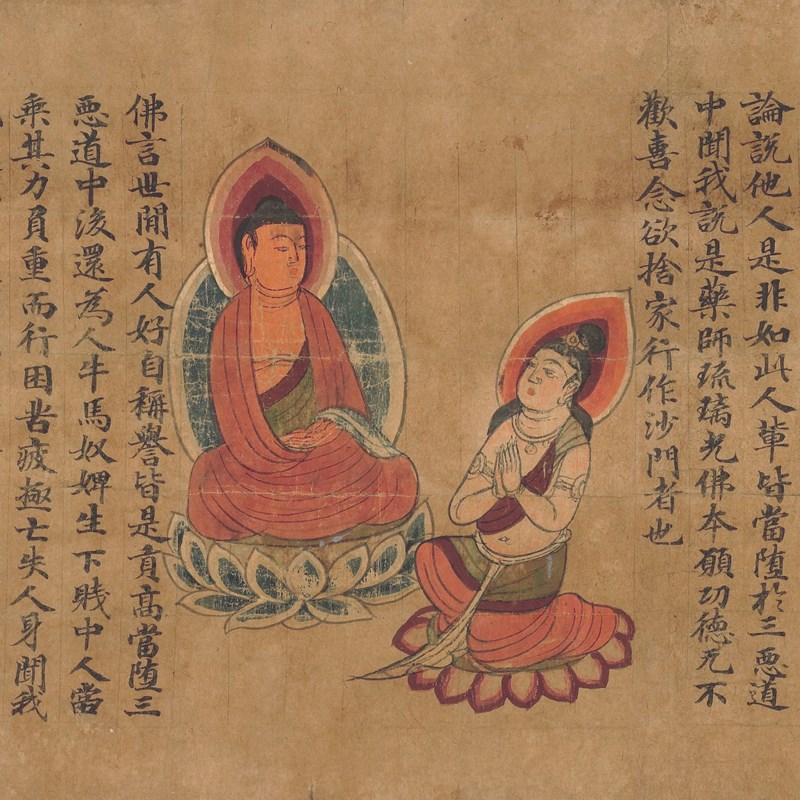 論說他人是非如此人輩皆當墮於三悪道
中聞我說是藥師琉璃光佛本願功德无不
歡喜念欲捨家行作沙門者也
佛言世間有人好自稱譽皆是貢高當墮三
悪道中後還為人牛馬奴婢生下賤中人當
乘其力負重而行困苦疲極亡失人身聞我